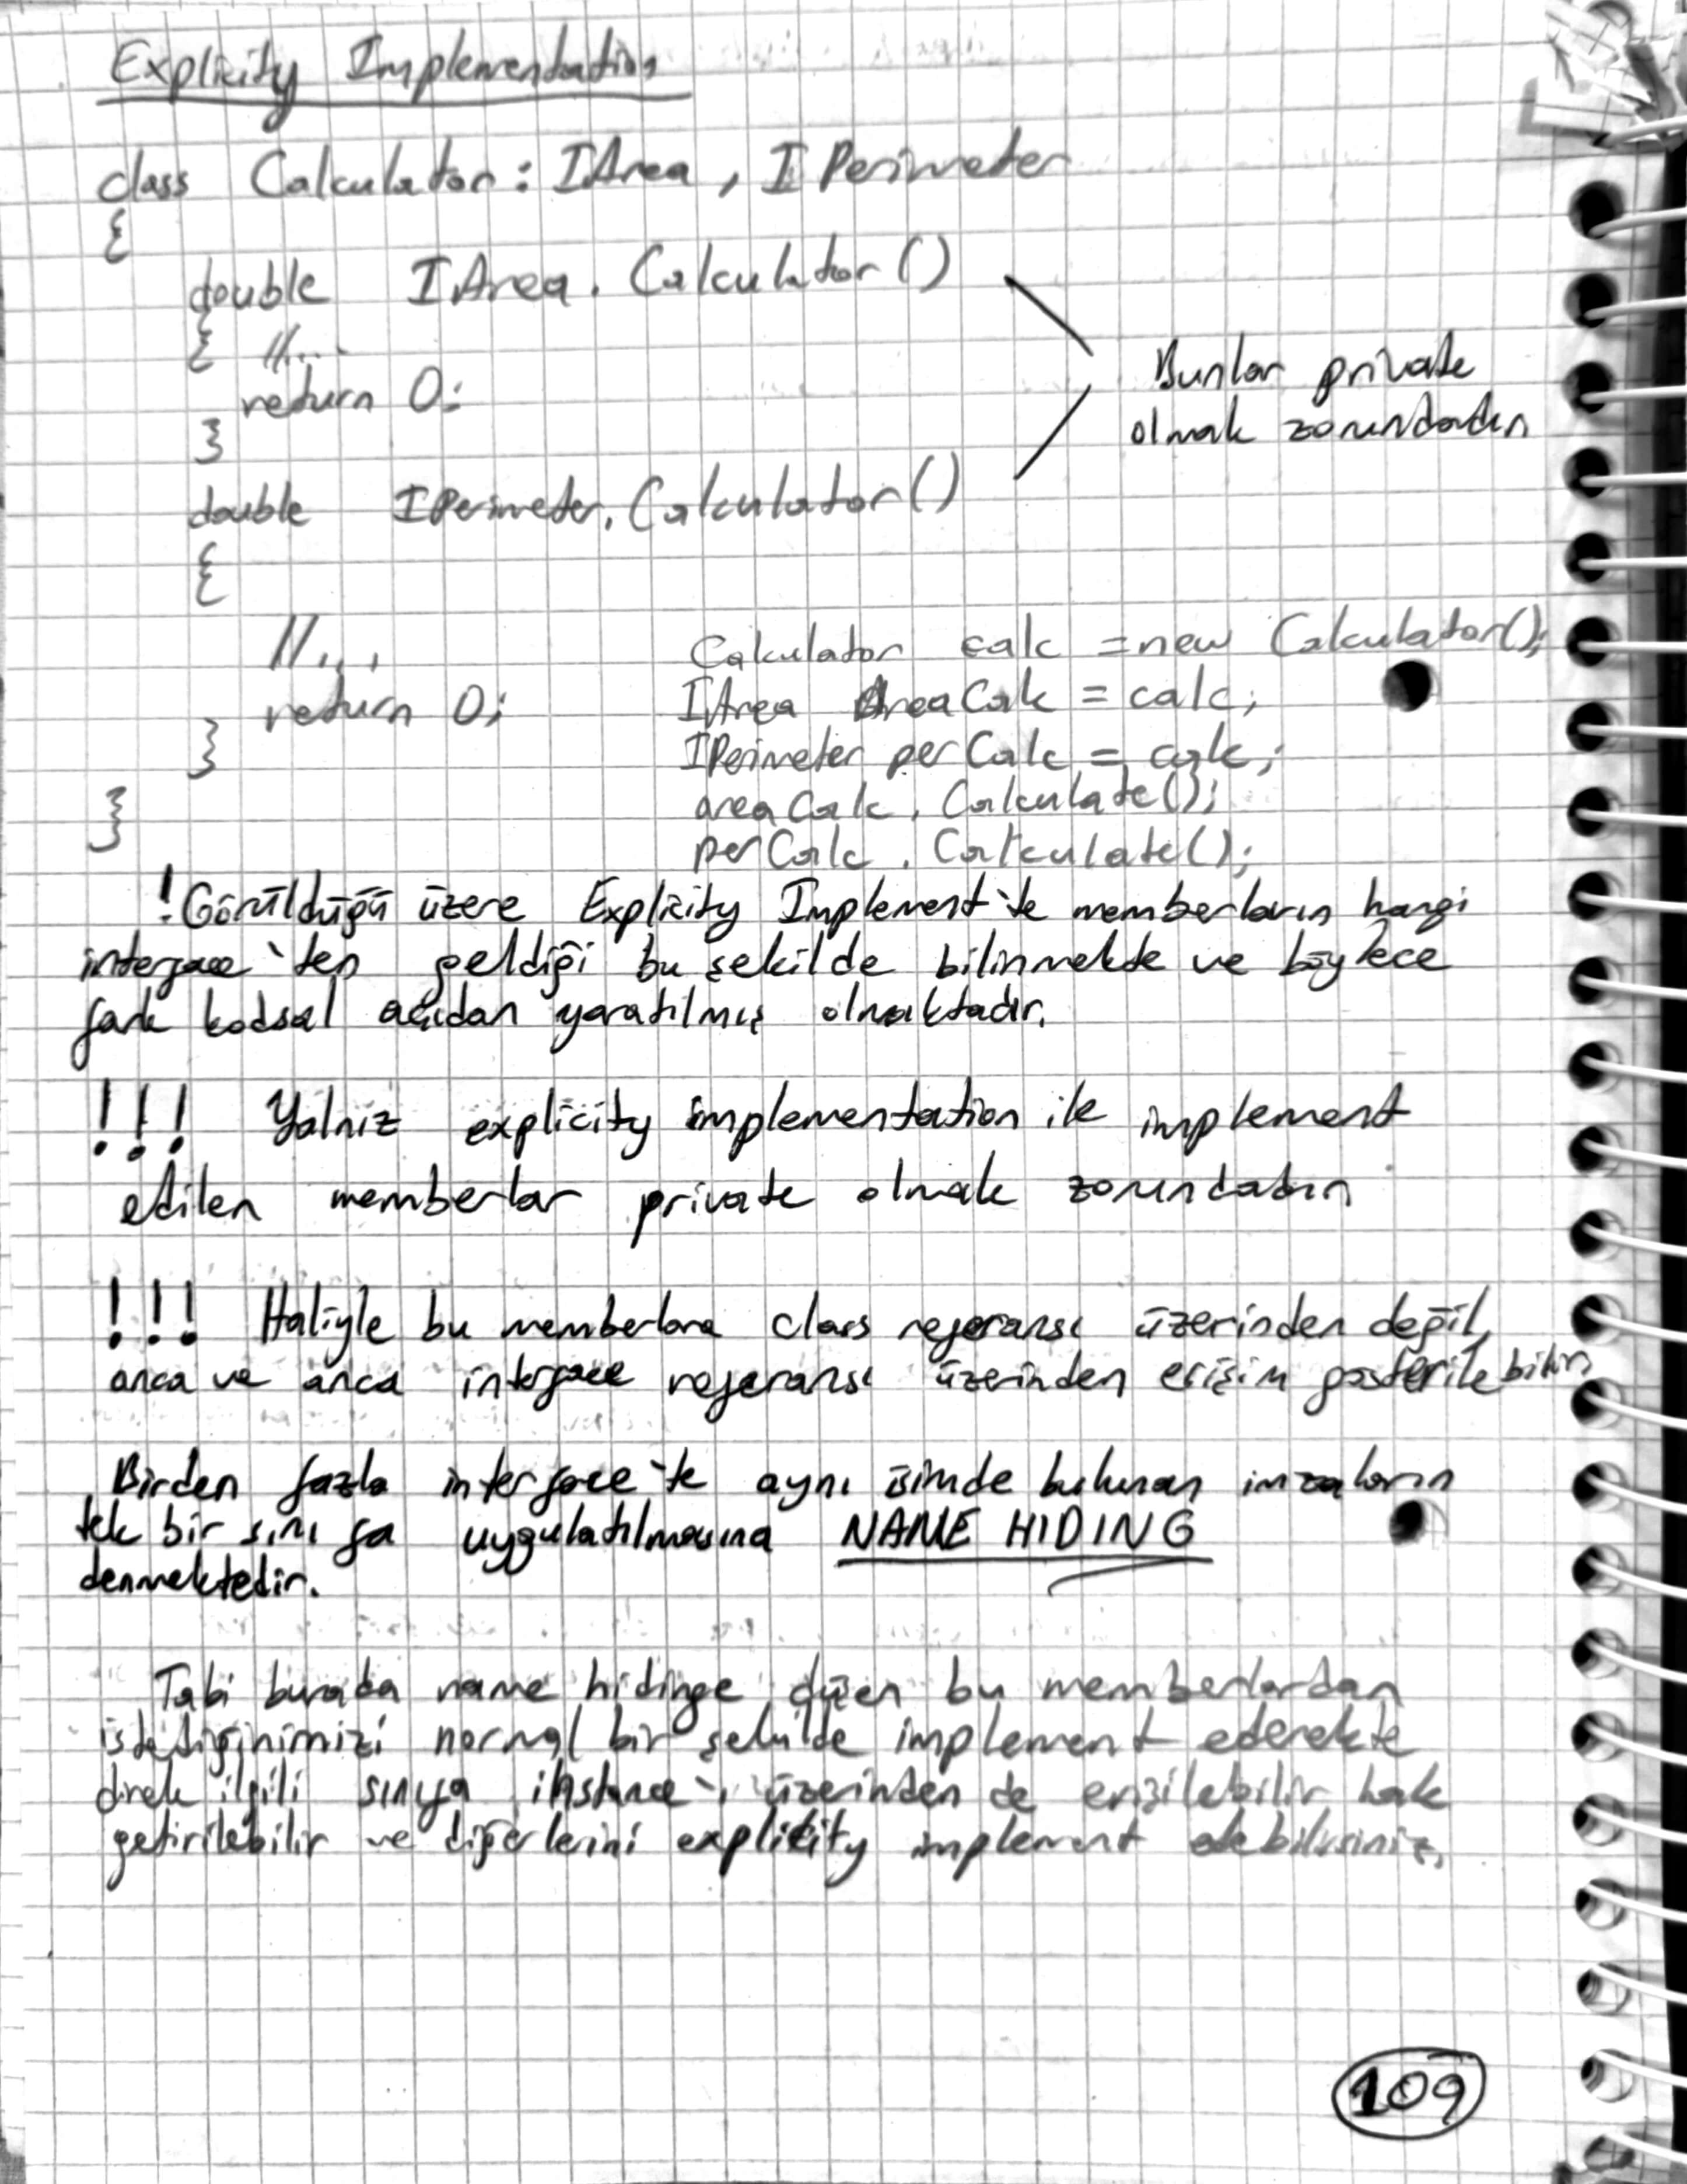 Explicity Implementation
class Calculator : IArea , IPerimeter
{
double IArea . Calculator ()
{ //...
return 0;
}
Bunlar private
olmak zorundadır
double IPerimeter. Calculator ()
{
//...
return 0;
}
}
Calculator calc = new Calculator();
IArea AreaCalc = calc;
IPerimeter perCalc = calc;
areaCalc . Calculate();
perCalc . Calculate();
! Görüldüğü üzere Explicity Implement'te memberların hangi
interface'ten geldiği bu şekilde bilinmekte ve böylece
fark kodsal açıdan yaratılmış olmaktadır.
!!! Yalnız explicity implementation ile implement
edilen memberlar private olmak zorundadır
!!! Haliyle bu memberlara class referansı üzerinden değil,
anca ve anca interface referansı üzerinden erişim gösterilebilir.
Birden fazla interface'te aynı isimde bulunan imzaların
tek bir sınıfa uygulatılmasına NAME HIDING
denmektedir.
Tabi burada name hidinge düşen bu memberlardan
istediğinimizi normal bir şekilde implement ederekte
direk ilgili sınıfa instance'ı üzerinden de erişilebilir hale
getirilebilir ve diğerlerini explicity implement edebilirsiniz.
109